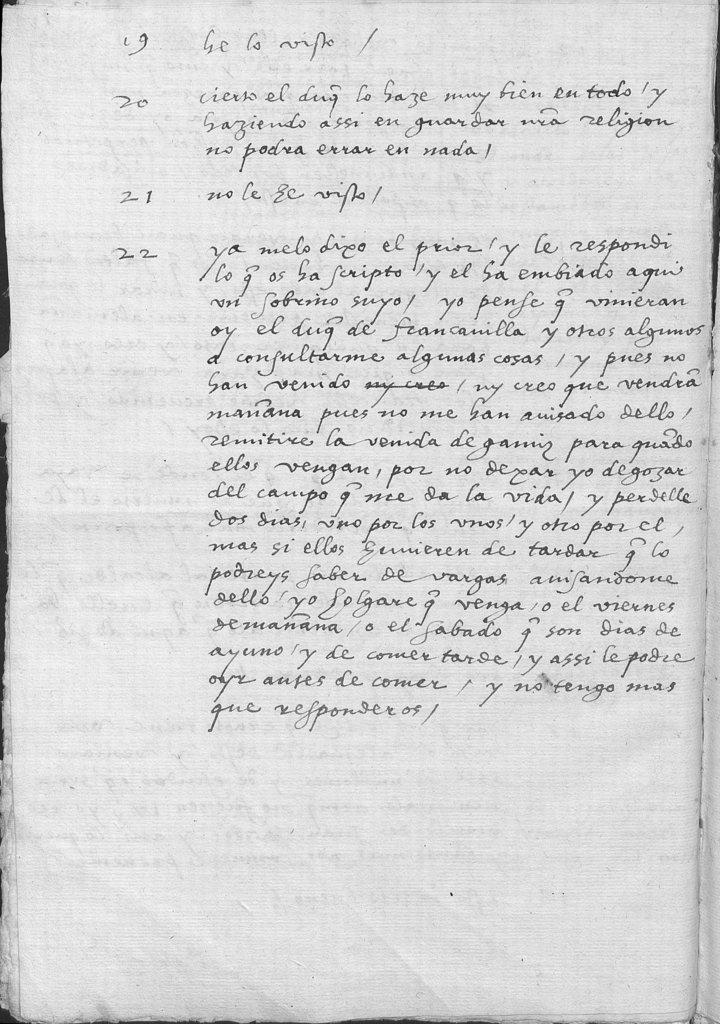 19 he lo visto /
20 cierto el duq̃ lo haze muy bien en todo / y
haziendo assi en guardar nr̃a religion
no podra errar en nada /
21 no le he visto /
22 ya melo dixo el prior / y le respondi
lo q̃ os ha scripto / y el ha embiado aqui
vn sobrino suyo / yo pense q̃ vinieran
oy el duq̃ de francauilla y otros algunos
a consultarme algunas cosas / y pues no
han venido ny creo / ny creo que vendrã
mañana pues no me han auisado dello /
remitire la venida de gamiz para quãdo
ellos vengan, por no dexar yo degozar
del campo q̃ me da la vida / y perdelle
dos dias, vno por los vnos / y otro por el,
mas si ellos huuieren de tardar q̃ lo
podreys saber de vargas auisandome
dello / yo holgare q̃ venga / o el viernes
demañana / o el sabado q̃ son dias de
ayuno / y de comer tarde / y assi le podre
oyr antes de comer / y no tengo mas
que responderos /